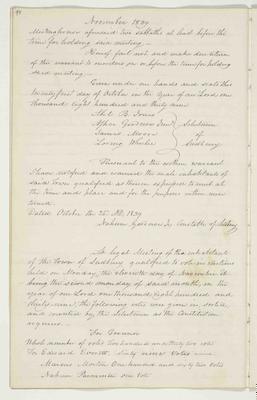 November 1839
Meetinghouse afternoon two sabbaths at least before the
time for holding said meeting.—
Hereof fail not and make due return
of the warrant to ourselves on or before the time for holding
said meeting.—
Given under our hands and seals this
twenty first day of October in the Year of our Lord one
thousand eight hundred and thirty nine
Abel B. Jones
Asher Goodnow Selectmen
James Moore of
Loring Wheeler Sudbury
Pursuant to the within warrant
I have notified and warned the male inhabitants of
said Town qualified as therein expressed to meet at
the time and place and for the purpose within men
tioned.
Dated October the 26th AD. 1839
Nahum Goodnow Jr Constable of Sudbury
A legal Meeting of the inhabitants
of the Town of Sudbury qualified to vote in elections
held on Monday, the eleventh day of November it
being the second monday of said month, in the
year of our Lord one thousand eight hundred and
thirty nine, the following votes were given in, sorted,
and counted by the Selectmen as the Constitution
requires.—
For Governor
Whole number of votes two hundred and thirty two
For Edward Everett, sixty nine Votes
Marcus Morton One hundred and sixty two Votes
Nahum one Vote